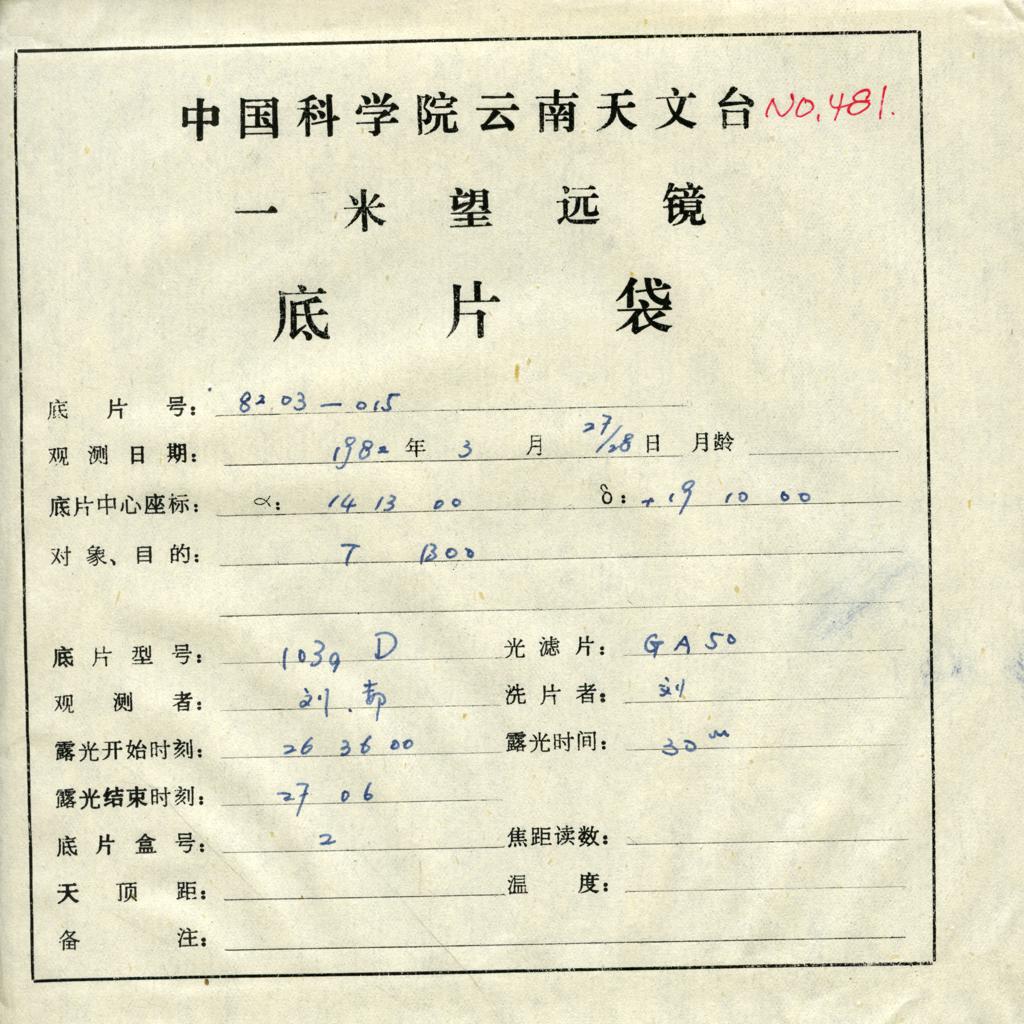 中国科学院云南天文台 NO.481.
一米望远镜
底片袋
底片号: 8203—015
观测日期: 1982年 3月 27/28日 月龄
底片中心座标: α: 14 13 00 δ: +19 10 00
对象、目的: T B00
底片型号: 103a D 光滤片: GA50
观测者: 刘. 洗片者: 刘
露光开始时刻: 26 36 00 露光时间: 30m
露光结束时刻: 27 06
底片盒号: 2 焦距读数:
天顶距: 温度:
备注: